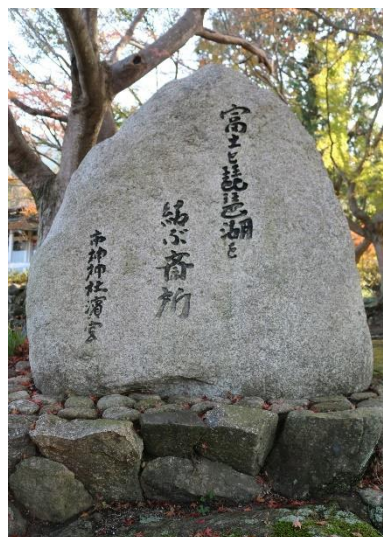 富士と琵琶湖を
結ぶ斎所
市神神社濱宮